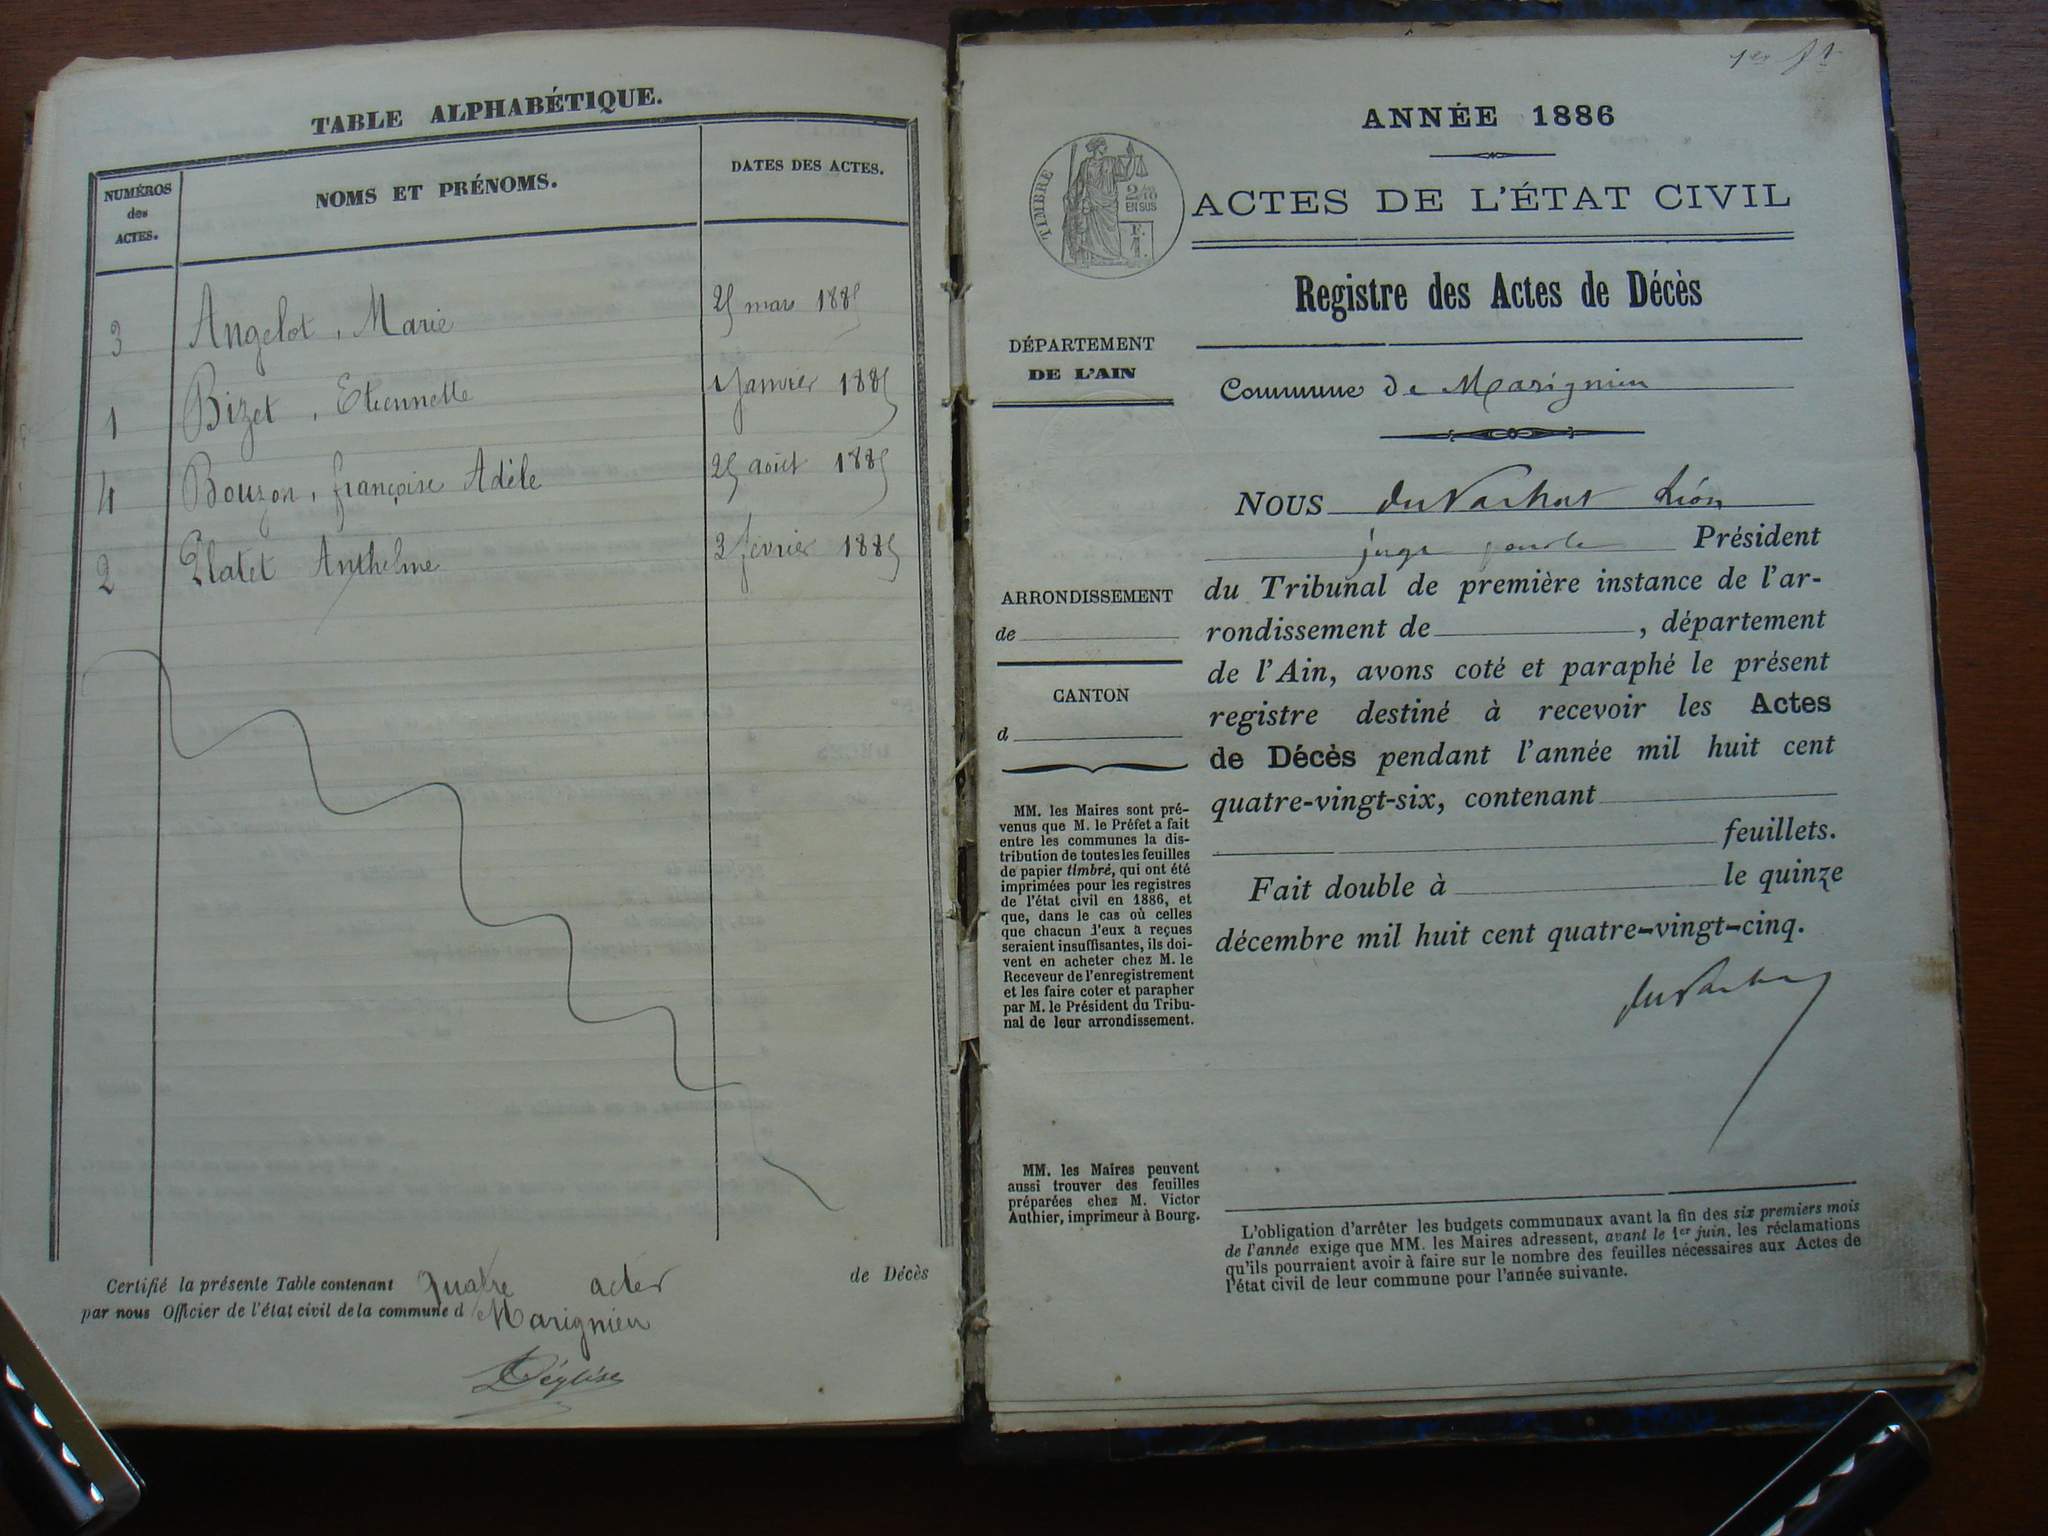 TABLE ALPHABÉTIQUE.
NUMÉROS des ACTES.
NOMS ET PRÉNOMS.
DATES DES ACTES.
3 Angelot, Marie 25 mars 1885
1 Bizet, Etiennette 1 Janvier 1885
4 Bouzon, françoise Adèle 25 août 1885
2 Platet Anthelme 3 février 1885
Certifié la présente Table contenant quatre actes de Décès
par nous Officier de l'état civil de la commune d Marignieu
Déglise
1er
ANNÉE 1886
TIMBRE
2/10
EN SUS
F.
1.
ACTES DE L'ÉTAT CIVIL
Registre des Actes de Décès
DÉPARTEMENT
DE L'AIN
Commune de Marignieu
NOUS Léon
juge pour le Président
du Tribunal de première instance de l'ar-
rondissement de , département
de l'Ain, avons coté et paraphé le présent
registre destiné à recevoir les Actes
de Décès pendant l'année mil huit cent
quatre-vingt-six, contenant
feuillets.
Fait double à le quinze
décembre mil huit cent quatre-vingt-cinq.
ARRONDISSEMENT
de
CANTON
d
MM. les Maires sont pré-
venus que M. le Préfet a fait
entre les communes la dis-
tribution de toutes les feuilles
de papier timbré, qui ont été
imprimées pour les registres
de l'état civil en 1886, et
que, dans le cas où celles
que chacun d'eux a reçues
seraient insuffisantes, ils doi-
vent en acheter chez M. le
Receveur de l'enregistrement
et les faire coter et parapher
par M. le Président du Tribu-
nal de leur arrondissement.
MM. les Maires peuvent
aussi trouver des feuilles
préparées chez M. Victor
Authier, imprimeur à Bourg.
L'obligation d'arrêter les budgets communaux avant la fin des six premiers mois
de l'année exige que MM. les Maires adressent, avant le 1er juin, les réclamations
qu'ils pourraient avoir à faire sur le nombre des feuilles nécessaires aux Actes de
l'état civil de leur commune pour l'année suivante.